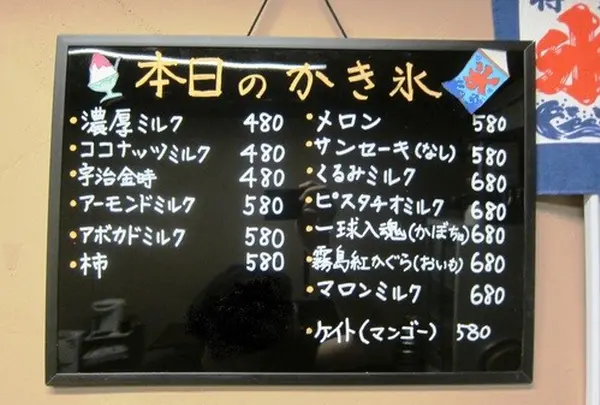 本日のかき氷
濃厚ミルク 480
ココナッツミルク 480
宇治金時 480
アーモンドミルク 580
アボカドミルク 580
柿 580
メロン 580
サンセーキ(なし) 580
くるみミルク 680
ピスタチオミルク 680
一球入魂(かぼちゃ) 680
霧島紅かぐら(おいも) 680
マロンミルク 680
ケイト(マンゴー) 580
氷
氷